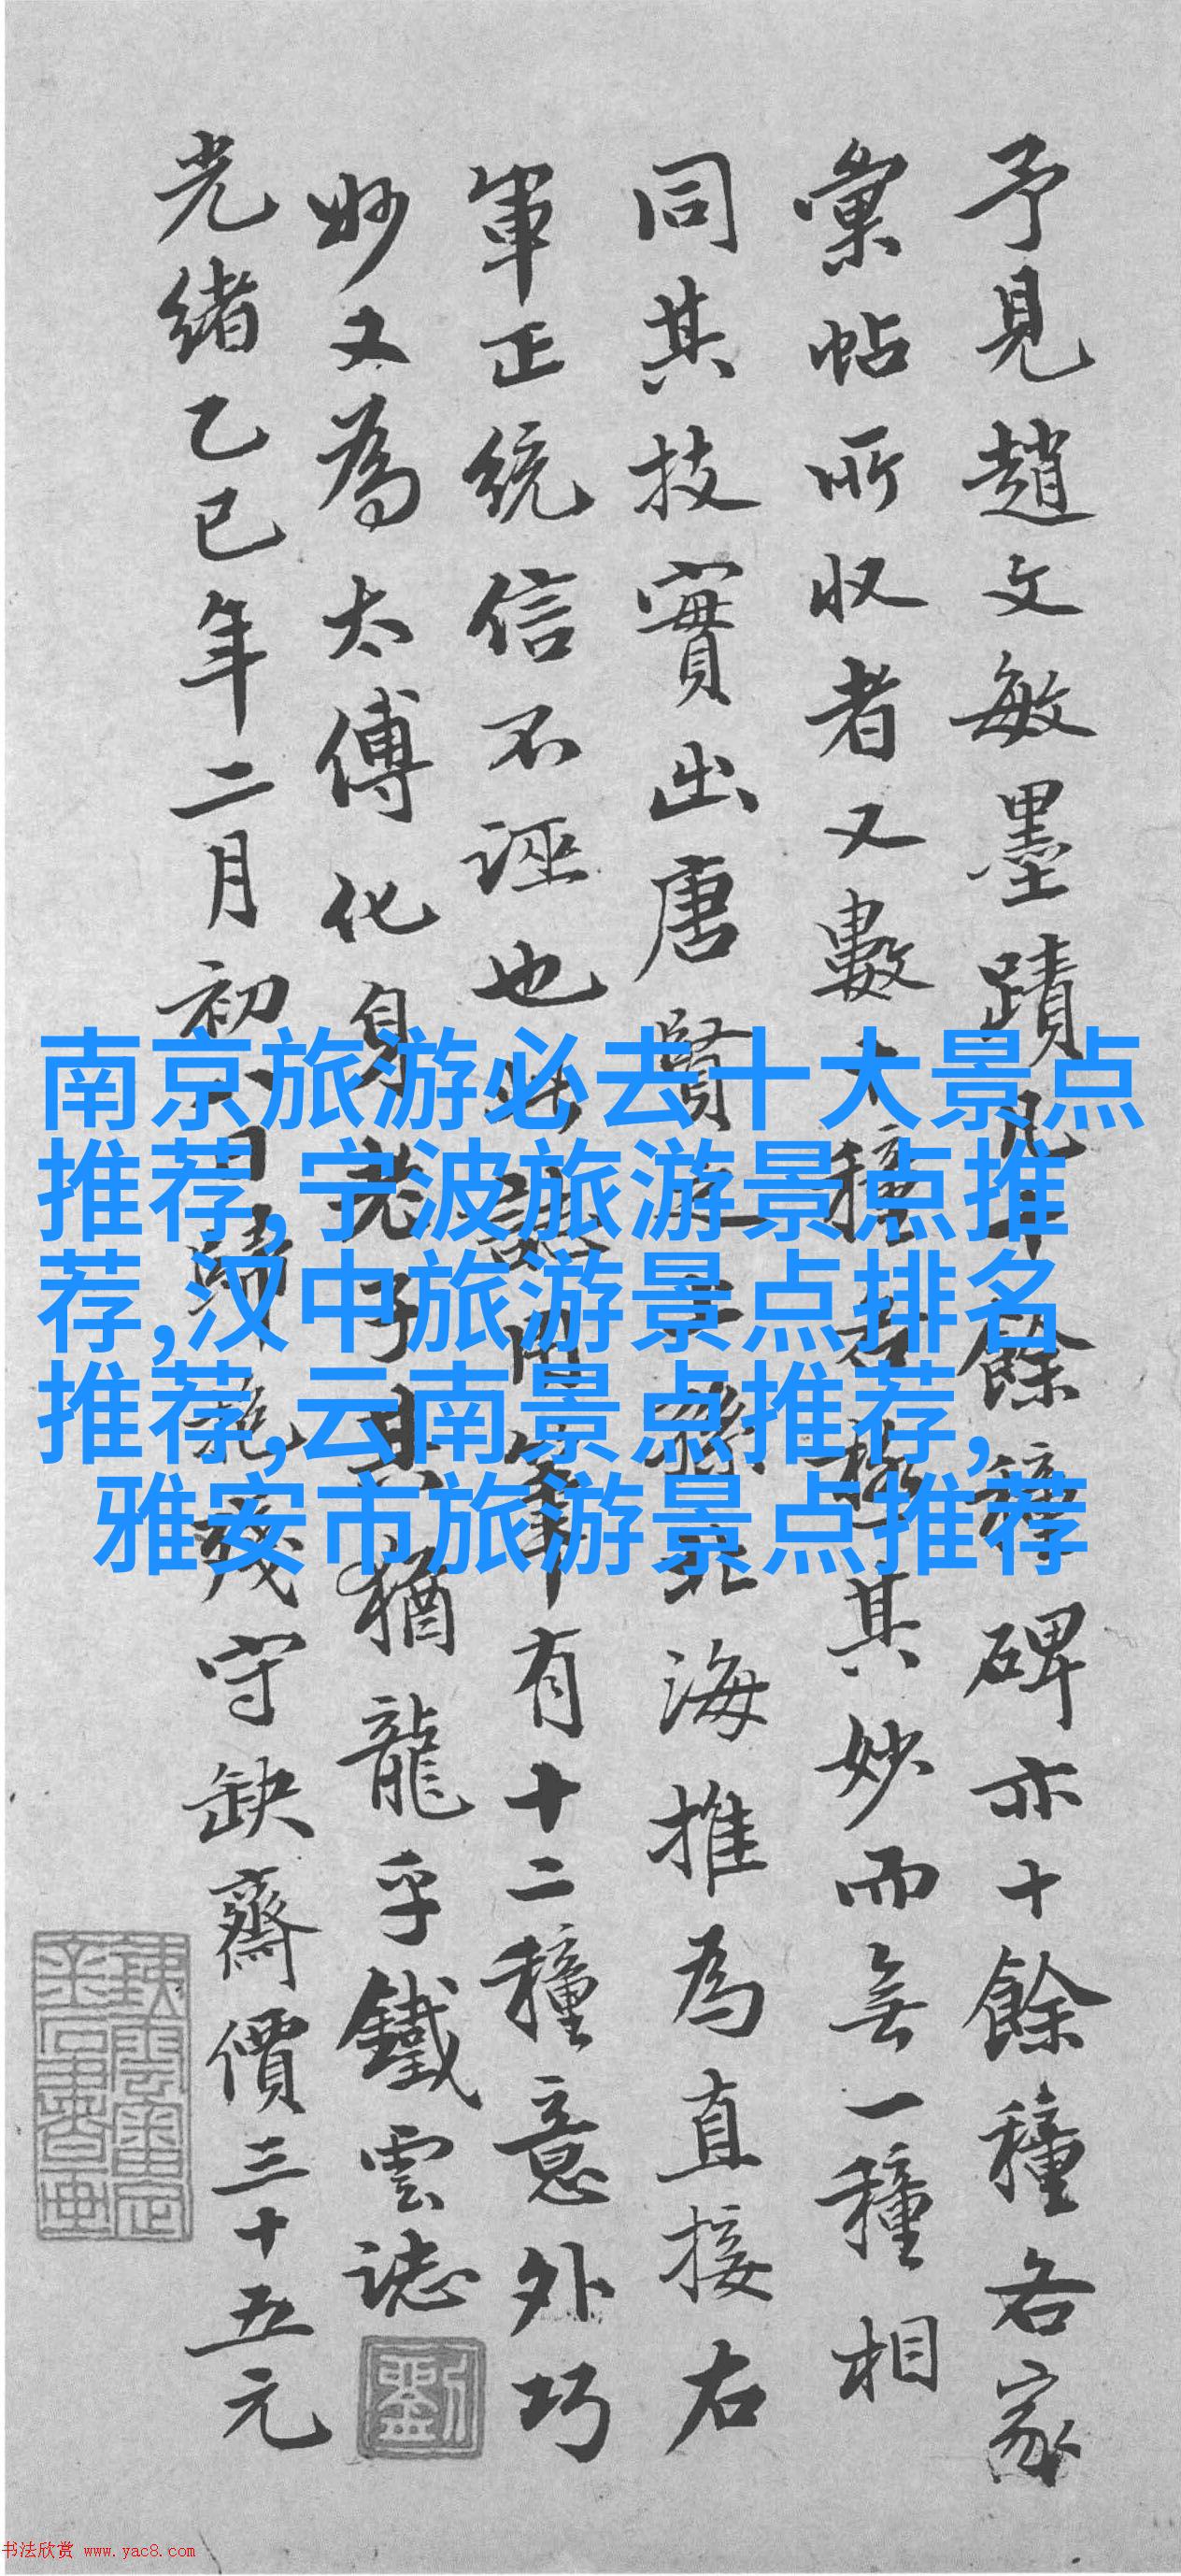 予見趙文敏墨蹟凡十餘種碑亦十餘種各家
彙帖所收者又數十種若極其妙而無一種相
同其技實出唐賢之上孫北海推為直接右
軍正統信不誣也此誌開年有十二種意外巧
妙又為太傅化身老子其猶龍乎鐵雲誌
光緒乙巳年二月初六日歸抱殘守缺齋價三十五元
劉
南京旅游必去十大景点
推荐,宁波旅游景点推
荐,汉中旅游景点排名
推荐,云南景点推荐,
雅安市旅游景点推荐
书法欣赏 www.yac8.com